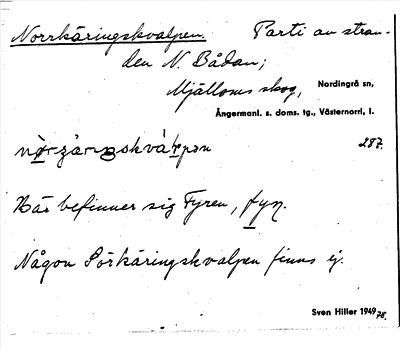 Norrkäringskvalpen. Parti av stran-
den N. Bådan;
Mjälloms skog, Nordingrå sn,
Ångermanl. s. doms. tg., Västernorrl. l.
287.
Här befinner sig Fyren, fyrn.
Någon Sörkäringskvalpen finns ej.
Sven Hiller 1949 78.